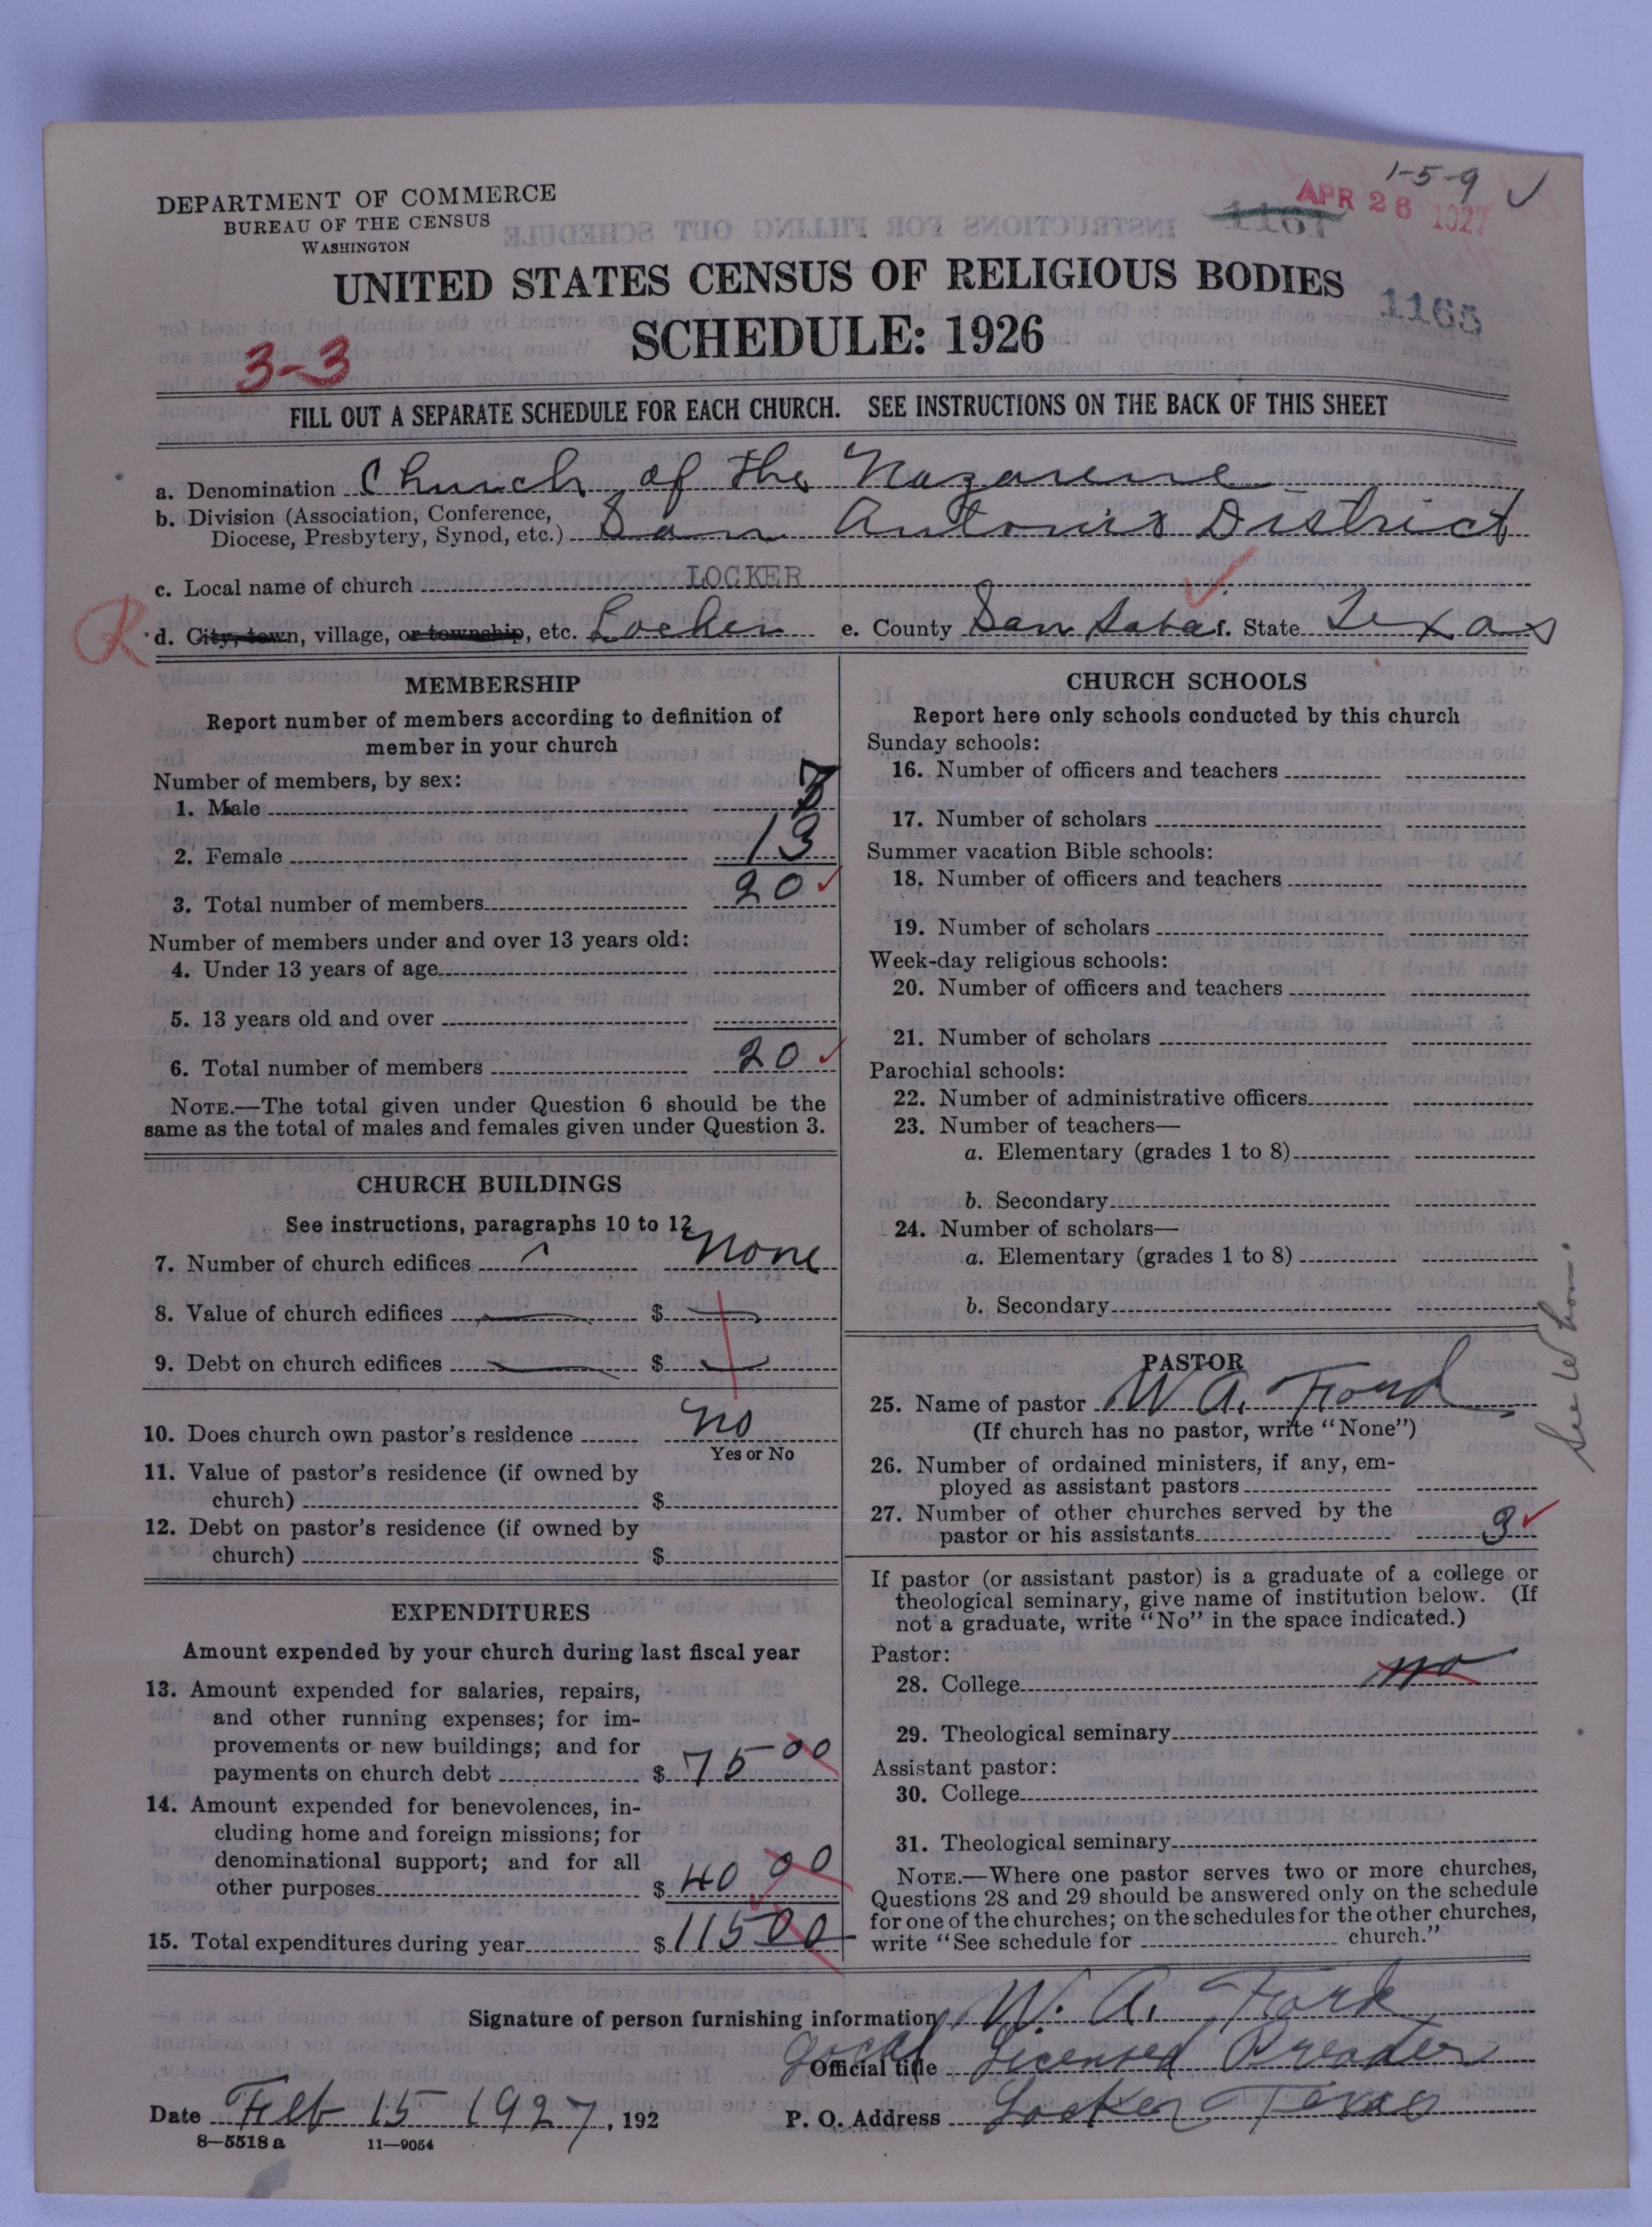 1-5-9 ✓
DEPARTMENT OF COMMERCE
BUREAU OF THE CENSUS
WASHINGTON
APR 28 1927
1167
UNITED STATES CENSUS OF RELIGIOUS BODIES
1165
SCHEDULE: 1926
3-3
FILL OUT A SEPARATE SCHEDULE FOR EACH CHURCH. SEE INSTRUCTIONS ON THE BACK OF THIS SHEET
a. Denomination Church of the Nazarene
b. Division (Association, Conference, Diocese, Presbytery, Synod, etc.) San Antonio District
c. Local name of church LOCKER
R d. City, town, village, or township, etc. Locker e. County San Saba f. State Texas
MEMBERSHIP
Report number of members according to definition of
member in your church
Number of members, by sex:
1. Male 7
2. Female 13
3. Total number of members 20 ✓
Number of members under and over 13 years old:
4. Under 13 years of age
5. 13 years old and over
6. Total number of members 20 ✓
NOTE.—The total given under Question 6 should be the
same as the total of males and females given under Question 3.
CHURCH BUILDINGS
See instructions, paragraphs 10 to 12
7. Number of church edifices None
8. Value of church edifices $
9. Debt on church edifices $
10. Does church own pastor's residence No
Yes or No
11. Value of pastor's residence (if owned by
church) $
12. Debt on pastor's residence (if owned by
church) $
EXPENDITURES
Amount expended by your church during last fiscal year
13. Amount expended for salaries, repairs,
and other running expenses; for im-
provements or new buildings; and for
payments on church debt $ 75 00
14. Amount expended for benevolences, in-
cluding home and foreign missions; for
denominational support; and for all
other purposes $ 40 00
15. Total expenditures during year $ 115 00
CHURCH SCHOOLS
Report here only schools conducted by this church
Sunday schools:
16. Number of officers and teachers
17. Number of scholars
Summer vacation Bible schools:
18. Number of officers and teachers
19. Number of scholars
Week-day religious schools:
20. Number of officers and teachers
21. Number of scholars
Parochial schools:
22. Number of administrative officers
23. Number of teachers—
a. Elementary (grades 1 to 8)
b. Secondary
24. Number of scholars—
a. Elementary (grades 1 to 8)
b. Secondary
PASTOR
25. Name of pastor W. A. Ford
(If church has no pastor, write "None")
26. Number of ordained ministers, if any, em-
ployed as assistant pastors
27. Number of other churches served by the
pastor or his assistants 3 ✓
If pastor (or assistant pastor) is a graduate of a college or
theological seminary, give name of institution below. (If
not a graduate, write "No" in the space indicated.)
Pastor:
28. College no
29. Theological seminary
Assistant pastor:
30. College
31. Theological seminary
NOTE.—Where one pastor serves two or more churches,
Questions 28 and 29 should be answered only on the schedule
for one of the churches; on the schedules for the other churches,
write "See schedule for church."
See
Signature of person furnishing information W. A. Ford
Official title Local Licensed Preacher
Date Feb 15 1927, 192 P. O. Address Locker Texas
8—5518 a 11—9054